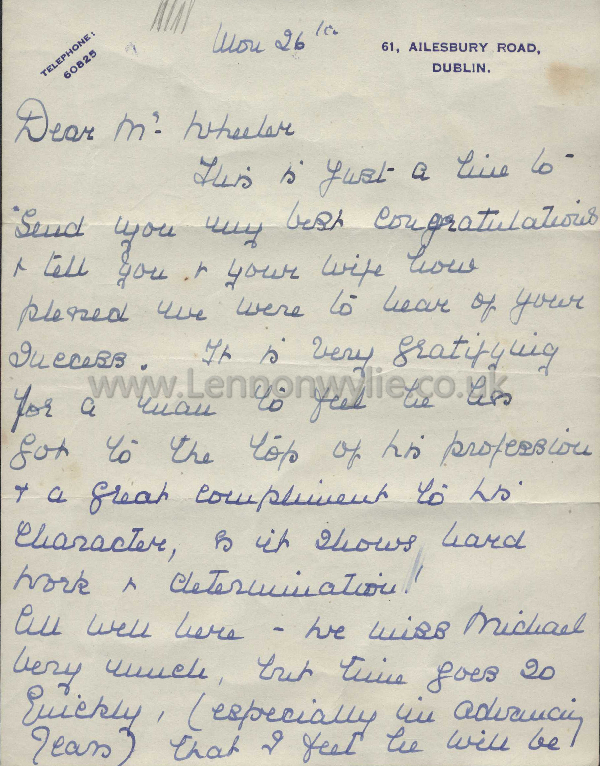 TELEPHONE:
60825
Mon 26th
61, AILESBURY ROAD,
DUBLIN.
Dear Mr Wheeler
This is just a line to
send you my best Congratulations
+ tell you + your wife how
plesed we were to hear of your
Success. It is very gratifying
www.Lennonwylie.co.uk
for a man to feel he has
got to the top of his profession
+ a great compliment to his
Character, as it shows hard
work + determination!
All well here - we miss Michael
very much, but time goes so
Quickly, (especially in advancing
years) that I feel he will be